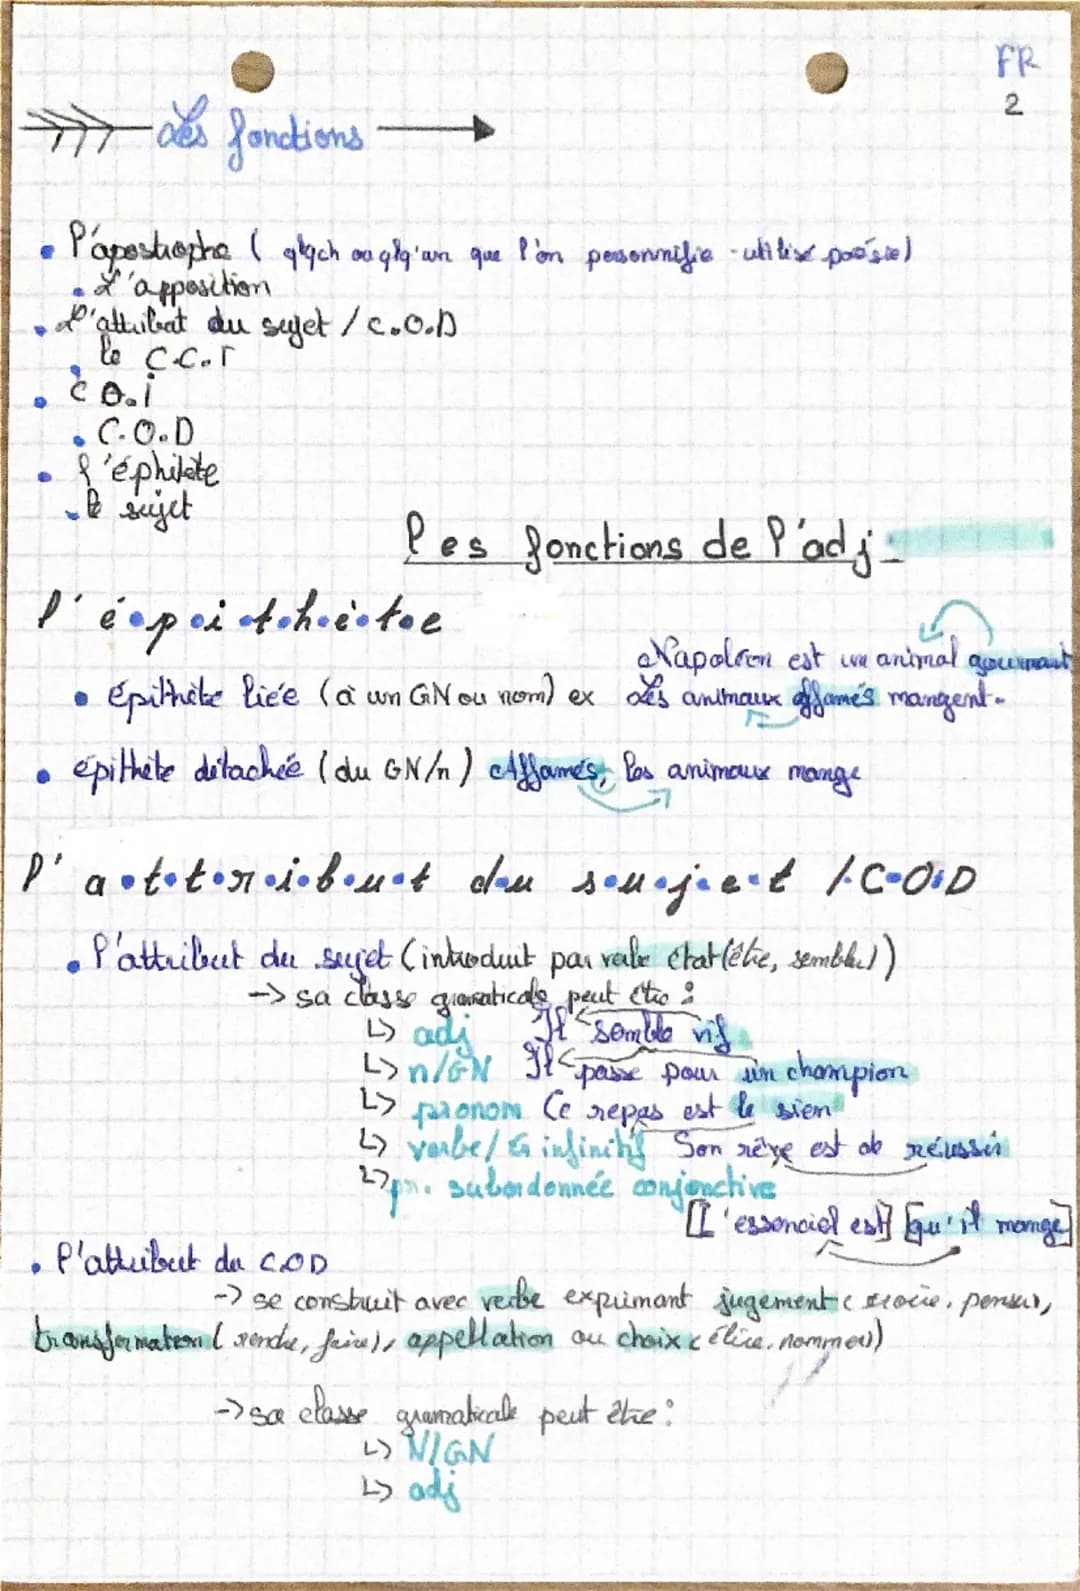 FR
2
Les fonctions
• l'apostrophe ( qlqch ou qlq'un que l'on personnifie - utilisé poésie)
• L'apposition
• L'attribut du sujet / C.O.D
• le C.C.T
• C O.i
• C.O.D
• l'éphitète
• le sujet
les fonctions de l'adj
l' é•p•i•t•h•è•t•e
Napoléon est un animal gourmant
• épithète liée (à un GN ou nom) ex Les animaux affamés mangent.
• épithète détachée (du GN/n) Affamés, les animaux mange
l' a•t•t•r•i•b•u•t d•u s•u•j•e•t /•C•O•D
• l'attribut du sujet (introduit par verbe état (être, sembler))
-> sa classe gramaticale peut être :
↳ adj Il semble vif
↳ n/GN Il passe pour un champion
↳ pronom Ce repas est le sien
↳ verbe/ infinitif Son rêve est de réussir
↳ pr. subordonnée conjonctive
[L'essenciel est] [qu'il mange]
• l'attribut du C.O.D
-> se construit avec verbe exprimant jugement ( croire, penser,
transformation ( rendre, faire), appellation ou choix ( élire, nommer)
-> sa classe gramaticale peut être :
↳ N/GN
↳ adj